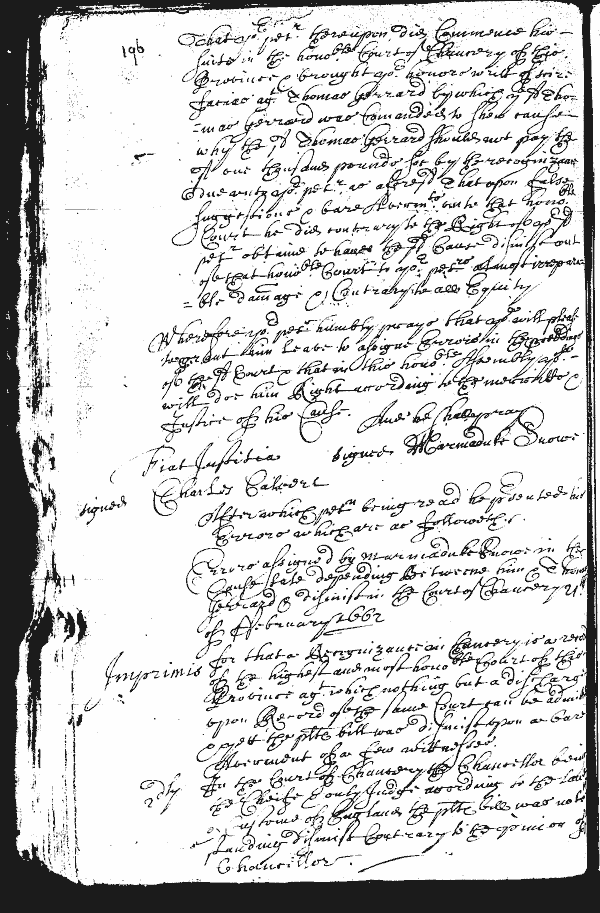 196
That yor petr thereupon did Commence his
suite in the honoble Court of Chancery of this
Province & brought yor honors writt of scire
facias agt Thomas Gerrard by which ye sd Tho-
-mas Gerrard was Comanded to shew cause
why the sd Thomas Gerrard should not pay the
sd one thousand pounds soe by the recognizance
due unto yor petr as aforesd That upon false
suggestions & bare Averrmts unto that honoble
Court he did contrary to the Right of yor sd
petr obtaine to have the sd Cause dismist out
of that honoble Court to yor petrs almost irrepara-
-ble damage & Contrary to all Equity
Wherefore yor petr humbly prayes that yor will please
to grant him leave to assigne Errors in the proceedings
of the sd Court & that in this honoble Assembly yor
will doe him Right according to the meritts &
Justice of his Cause. And he shall pray
Fiat Justitia signed Marmaduke Snowe
signed Charles Calvert
After which petn being read he presented his
Errors which are as followeth.
Errors assigned by Marmaduke Snowe in the
Cause late depending Betweene him & Thomas
Gerrard & dismist in the Court of Chancery 21th
of ffebruary 1662
Imprimis for that a Recognizance in Chancery is a record
of the highest and most honoble Court of this
Province agt which nothing but a discharge
upon Record of the same Court can be admitt
& yett the plts bill was dismist upon a bare
Averment of a few wittnesses
2dly In the Court of Chancery the Chancellor being
the Cheife & only Judge according to the Law
& Custome of England the plts bill was notwth
standing dismist Contrary to the opinion of
Chancellor.